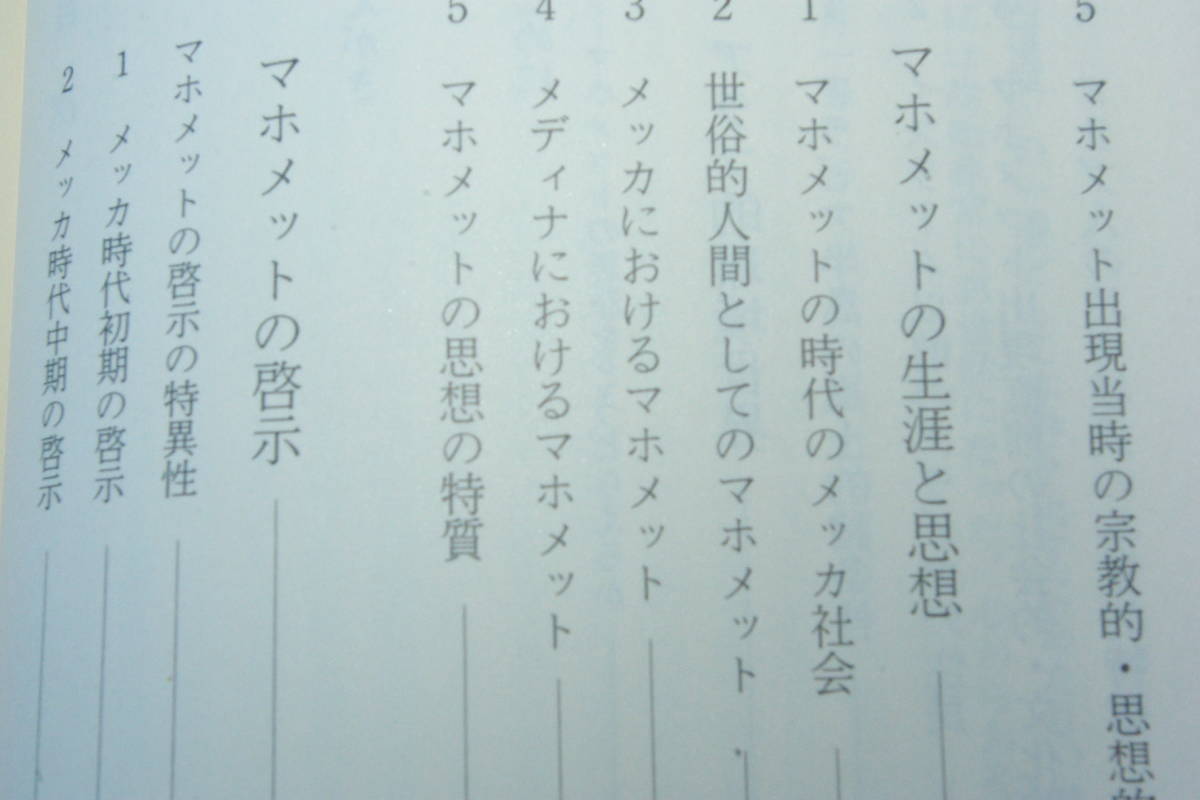 5 マホメット出現当時の宗教的・思想的
マホメットの生涯と思想
1 マホメットの時代のメッカ社会
2 世俗的人間としてのマホメット
3 メッカにおけるマホメット
4 メディナにおけるマホメット
5 マホメットの思想の特質
マホメットの啓示
マホメットの啓示の特異性
1 メッカ時代初期の啓示
2 メッカ時代中期の啓示